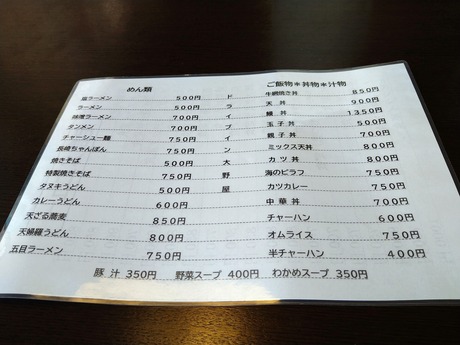 めん類
塩ラーメン 500円
ラーメン 500円
味噌ラーメン 700円
タンメン 700円
チャーシュー麺 750円
長崎ちゃんぽん 750円
焼きそば 500円
特製焼きそば 750円
タヌキうどん 500円
カレーうどん 600円
天ざる蕎麦 850円
天婦羅うどん 800円
五目ラーメン 750円
ドライブイン大野屋
ご飯物＊丼物＊汁物
牛網焼き丼 850円
天丼 900円
鰻丼 1350円
玉子丼 500円
親子丼 700円
ミックス天丼 800円
カツ丼 800円
海のピラフ 750円
カツカレー 750円
中華丼 700円
チャーハン 600円
オムライス 750円
半チャーハン 400円
豚汁 350円 野菜スープ 400円 わかめスープ 350円